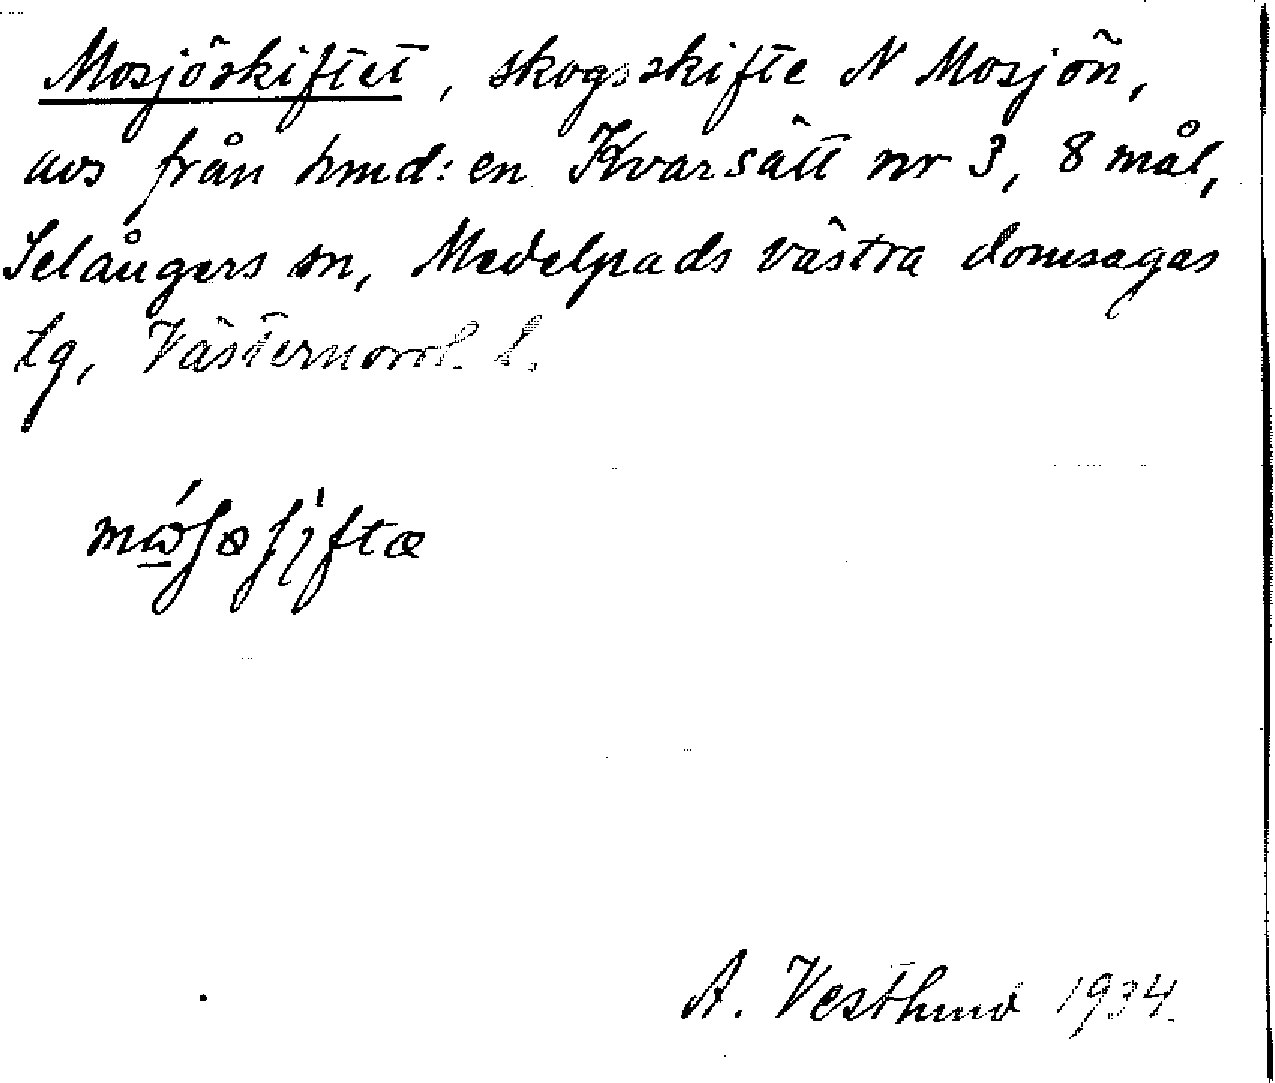 Mosjöskiftet, skogsskifte N Mosjön,
avs från hmd:en Kvarsätt nr 3, 8 mål,
Selångers sn, Medelpads västra domsagas
tg, Västernorrl. l.
A. Vestlund 1934.